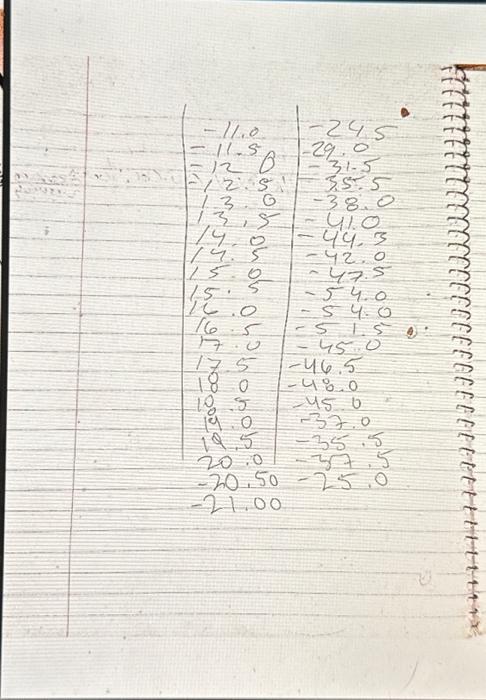 -11.0 -24.5
-11.5 -29.0
-12.0 -31.5
-12.5 -35.5
13.0 -38.0
13.5 -41.0
14.0 -44.5
14.5 -42.0
15.0 -47.5
15.5 -54.0
16.0 -54.0
16.5 -51.5
17.0 -45.0
17.5 -46.5
18.0 -48.0
18.5 -45.0
19.0 -37.0
19.5 -35.5
20.0 -37.5
-20.50 -25.0
-21.00